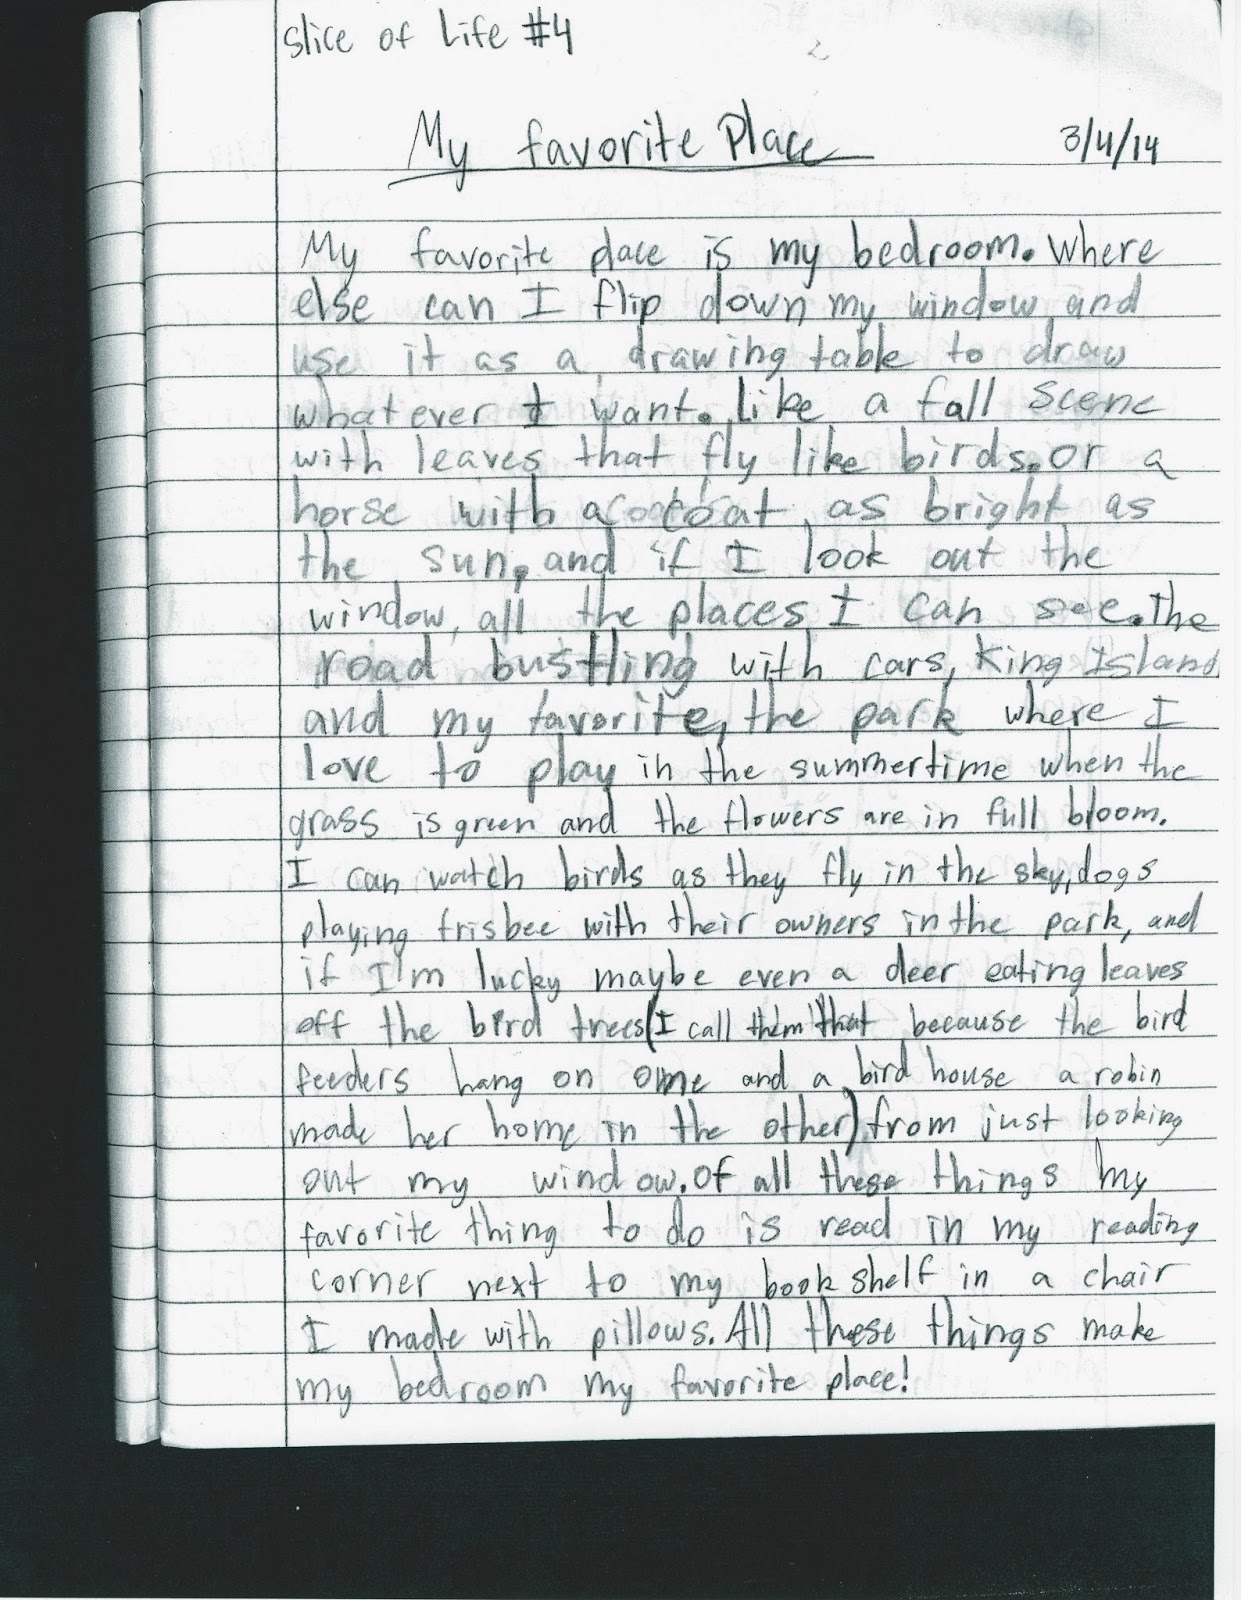 Slice of Life #4
My favorite Place 3/4/14
My favorite place is my bedroom. Where
else can I flip down my window and
use it as a drawing table to draw
what ever I want. Like a fall scene
with leaves that fly like birds. Or a
horse with a coat as bright as
the sun, and if I look out the
window, all the places I can see. The
road bustling with cars, King Island
and my favorite, the park where I
love to play in the summertime when the
grass is green and the flowers are in full bloom.
I can watch birds as they fly in the sky, dogs
playing frisbee with their owners in the park, and
if I'm lucky maybe even a deer eating leaves
off the bird trees (I call them that because the bird
feeders hang on one and a bird house a robin
made her home in the other) from just looking
out my window. Of all these things my
favorite thing to do is read in my reading
corner next to my book shelf in a chair
I made with pillows. All these things make
my bedroom my favorite place!